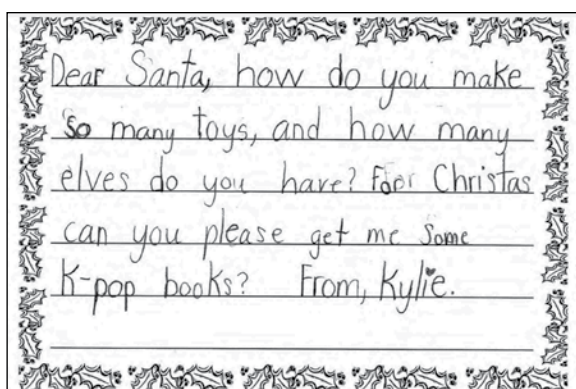 Dear Santa, how do you make
so many toys, and how many
elves do you have? foor Christas
can you please get me some
K-pop books? From, Kylie.